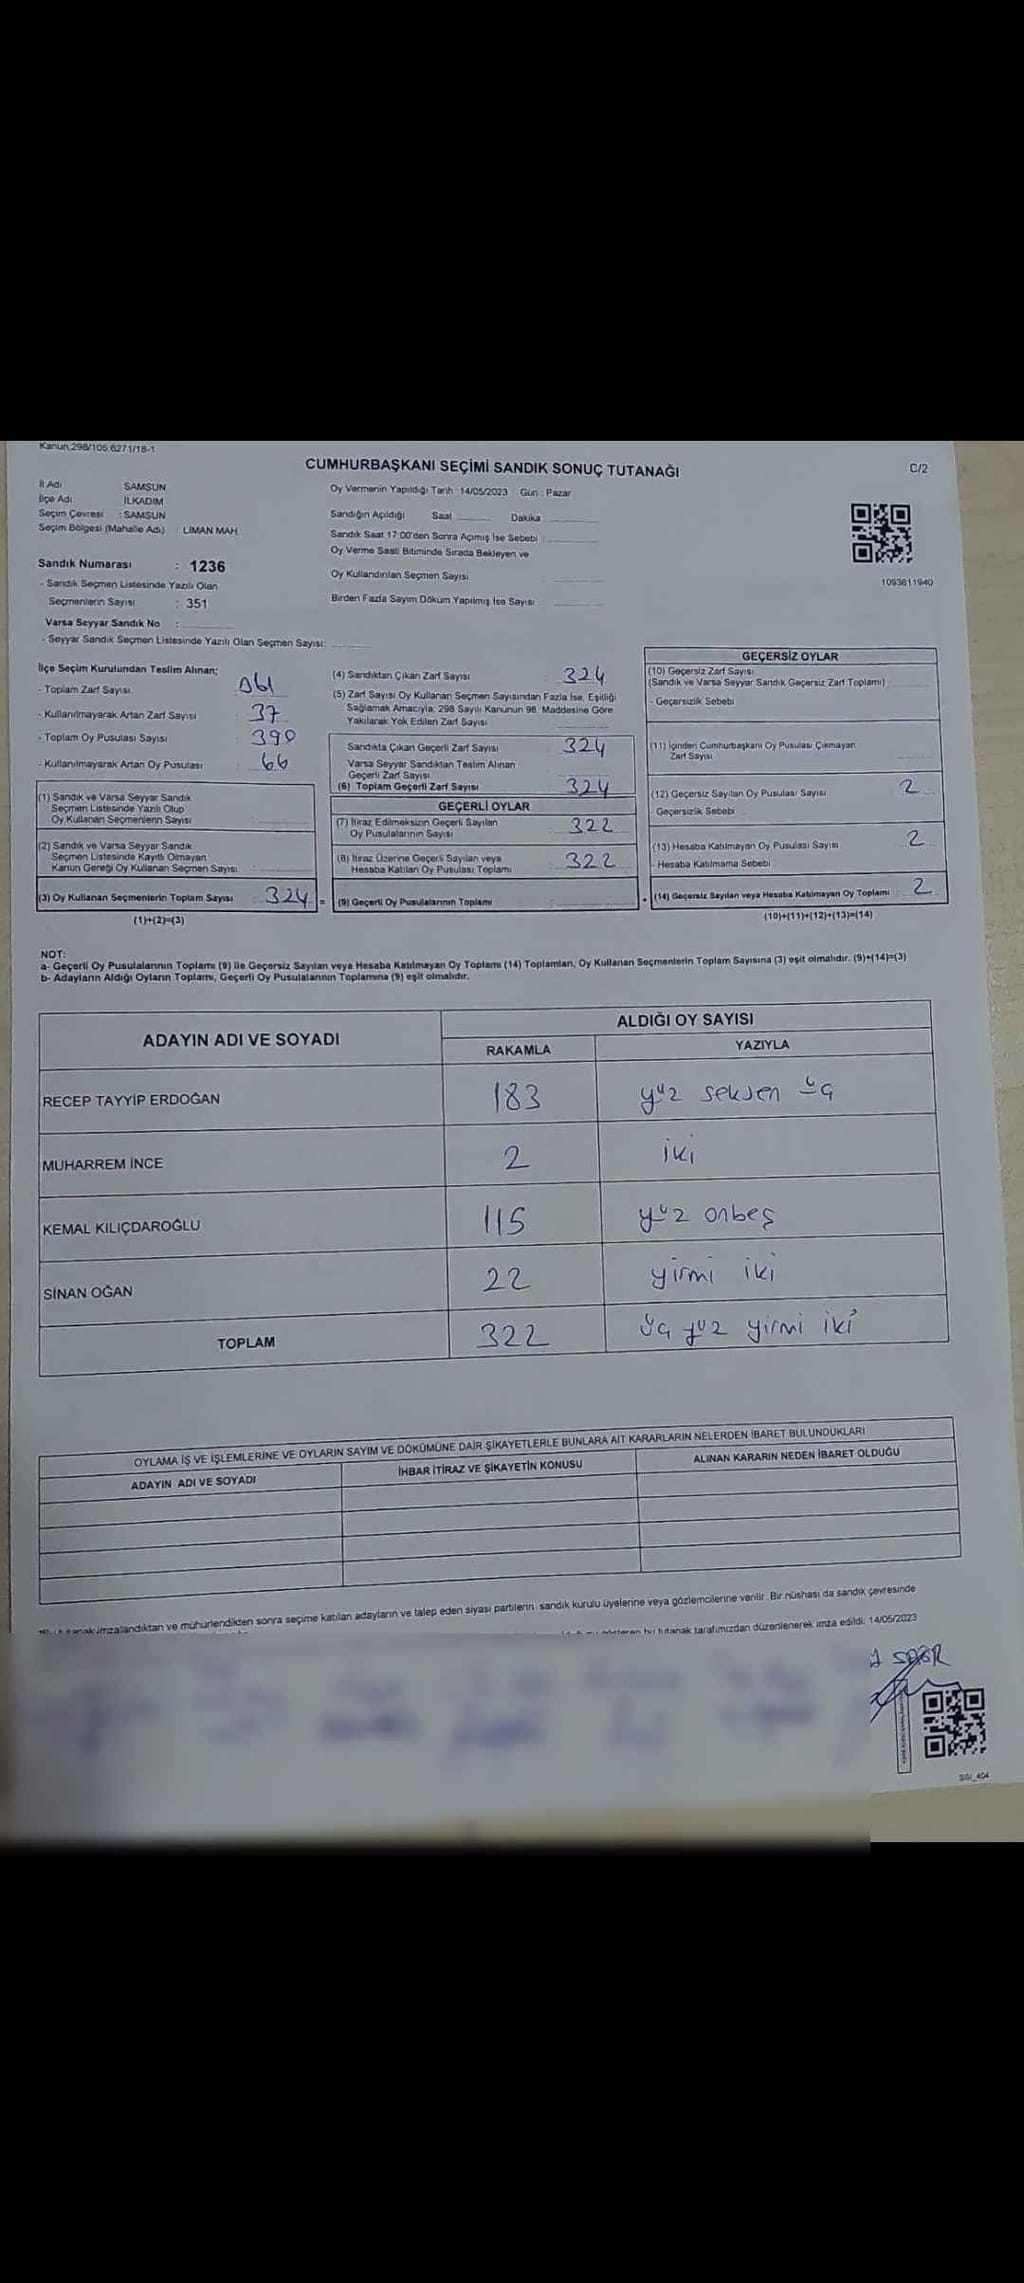 Kanun,298/105,6271/18-1
CUMHURBAŞKANI SEÇİMİ SANDIK SONUÇ TUTANAĞI
C/2
İl Adı SAMSUN
İlçe Adı İLKADIM
Seçim Çevresi : SAMSUN
Seçim Bölgesi (Mahalle Adı) : LİMAN MAH.
Sandık Numarası : 1236
- Sandık Seçmen Listesinde Yazılı Olan
Seçmenlerin Sayısı : 351
Varsa Seyyar Sandık No :
- Seyyar Sandık Seçmen Listesinde Yazılı Olan Seçmen Sayısı:
Oy Vermenin Yapıldığı Tarih : 14/05/2023 Gün : Pazar
Sandığın Açıldığı Saat Dakika
Sandık Saat 17:00'den Sonra Açımış İse Sebebi :
Oy Verme Saati Bitiminde Sırada Bekleyen ve
Oy Kullandırılan Seçmen Sayısı :
Birden Fazla Sayım Döküm Yapılmış İse Sayısı :
1093611940
İlçe Seçim Kurulundan Teslim Alınan;
- Toplam Zarf Sayısı : 361
- Kullanılmayarak Artan Zarf Sayısı : 37
- Toplam Oy Pusulası Sayısı : 390
- Kullanılmayarak Artan Oy Pusulası : 66
(1) Sandık ve Varsa Seyyar Sandık
Seçmen Listesinde Yazılı Olup
Oy Kullanan Seçmenlerin Sayısı :
(2) Sandık ve Varsa Seyyar Sandık
Seçmen Listesinde Kayıtlı Olmayan
Kanun Gereği Oy Kullanan Seçmen Sayısı :
(3) Oy Kullanan Seçmenlerin Toplam Sayısı : 324 =
(1)+(2)=(3)
(4) Sandıktan Çıkan Zarf Sayısı : 324
(5) Zarf Sayısı Oy Kullanan Seçmen Sayısından Fazla İse, Eşitliği
Sağlamak Amacıyla; 298 Sayılı Kanunun 98. Maddesine Göre
Yakılarak Yok Edilen Zarf Sayısı
Sandıkta Çıkan Geçerli Zarf Sayısı : 324
Varsa Seyyar Sandıktan Teslim Alınan
Geçerli Zarf Sayısı
(6) Toplam Geçerli Zarf Sayısı 324
GEÇERLİ OYLAR
(7) İtiraz Edilmeksizin Geçerli Sayılan
Oy Pusulalarının Sayısı : 322
(8) İtiraz Üzerine Geçerli Sayılan veya
Hesaba Katılan Oy Pusulası Toplamı : 322
(9) Geçerli Oy Pusulalarının Toplamı :
GEÇERSİZ OYLAR
(10) Geçersiz Zarf Sayısı
(Sandık ve Varsa Seyyar Sandık Geçersiz Zarf Toplamı)
- Geçersizlik Sebebi
(11) İçinden Cumhurbaşkanı Oy Pusulası Çıkmayan
Zarf Sayısı
(12) Geçersiz Sayılan Oy Pusulası Sayısı 2
- Geçersizlik Sebebi
(13) Hesaba Katılmayan Oy Pusulası Sayısı 2
- Hesaba Katılmama Sebebi
+ (14) Geçersiz Sayılan veya Hesaba Katılmayan Oy Toplamı : 2
(10)+(11)+(12)+(13)=(14)
NOT:
a- Geçerli Oy Pusulalarının Toplamı (9) ile Geçersiz Sayılan veya Hesaba Katılmayan Oy Toplamı (14) Toplamları, Oy Kullanan Seçmenlerin Toplam Sayısına (3) eşit olmalıdır. (9)+(14)=(3)
b- Adayların Aldığı Oyların Toplamı, Geçerli Oy Pusulalarının Toplamına (9) eşit olmalıdır.
ADAYIN ADI VE SOYADI ALDIĞI OY SAYISI
RAKAMLA YAZIYLA
RECEP TAYYİP ERDOĞAN 183 yüz seksen üç
MUHARREM İNCE 2 iki
KEMAL KILIÇDAROĞLU 115 yüz onbeş
SİNAN OĞAN 22 yirmi iki
TOPLAM 322 üç yüz yirmi iki
OYLAMA İŞ VE İŞLEMLERİNE VE OYLARIN SAYIM VE DÖKÜMÜNE DAİR ŞİKAYETLERLE BUNLARA AİT KARARLARIN NELERDEN İBARET BULUNDUKLARI
ADAYIN ADI VE SOYADI İHBAR İTİRAZ VE ŞİKAYETİN KONUSU ALINAN KARARIN NEDEN İBARET OLDUĞU
tutanak imzalandıktan ve mühürlendikten sonra seçime katılan adayların ve talep eden siyasi partilerin sandık kurulu üyelerine veya gözlemcilerine verilir. Bir nüshası da sandık çevresinde
gösteren bu tutanak tarafımızdan düzenlenerek imza edildi. 14/05/2023